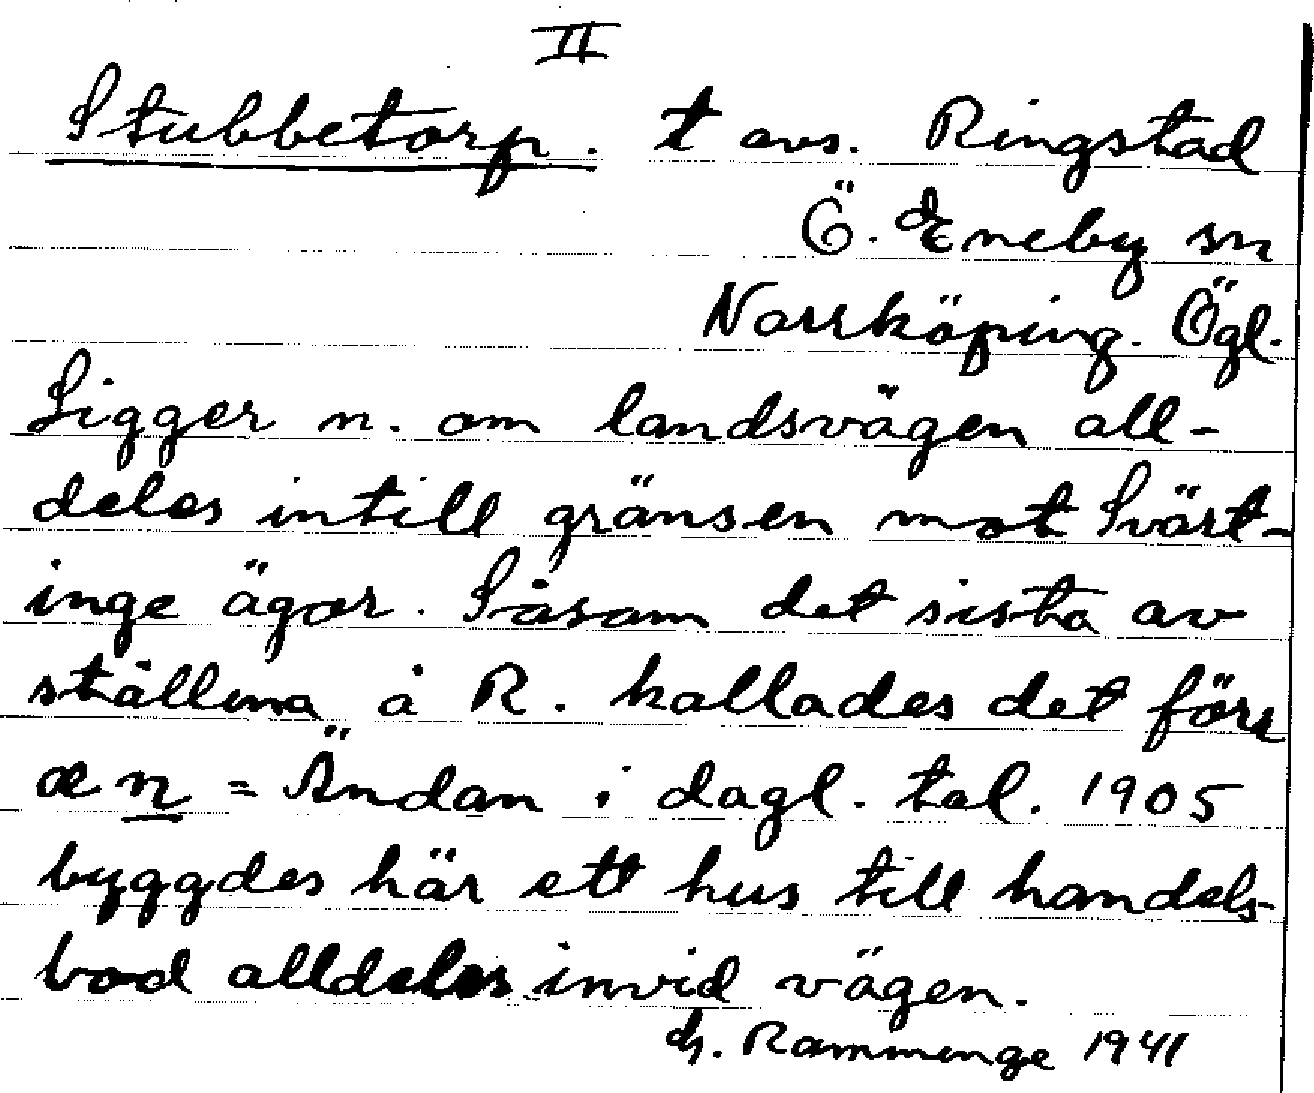 II
Stubbetorp. t avs. Ringstad
Ö. Eneby sn
Norrköping. Ögl.
Ligger n. om landsvägen all-
deles intill gränsen mot Svärt-
inge ägor. Såsom det sista av
ställena å R. kallades det förr
æn = Ändan i dagl. tal. 1905
byggdes här ett hus till handels-
bod alldeles invid vägen.
Ramminge 1941